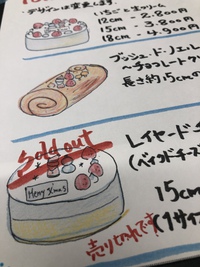 ・デザインは変更します。
いちご&生クリーム
12cm - 2.800円
15cm - 3.800円
18cm - 4.900円
ブッシュ・ド・ノエル
長さ約15cmの
Sold out
Merry Xmas
レイヤードチ
(ベイクドチーズ
15cm
(1サイ
売り切れです